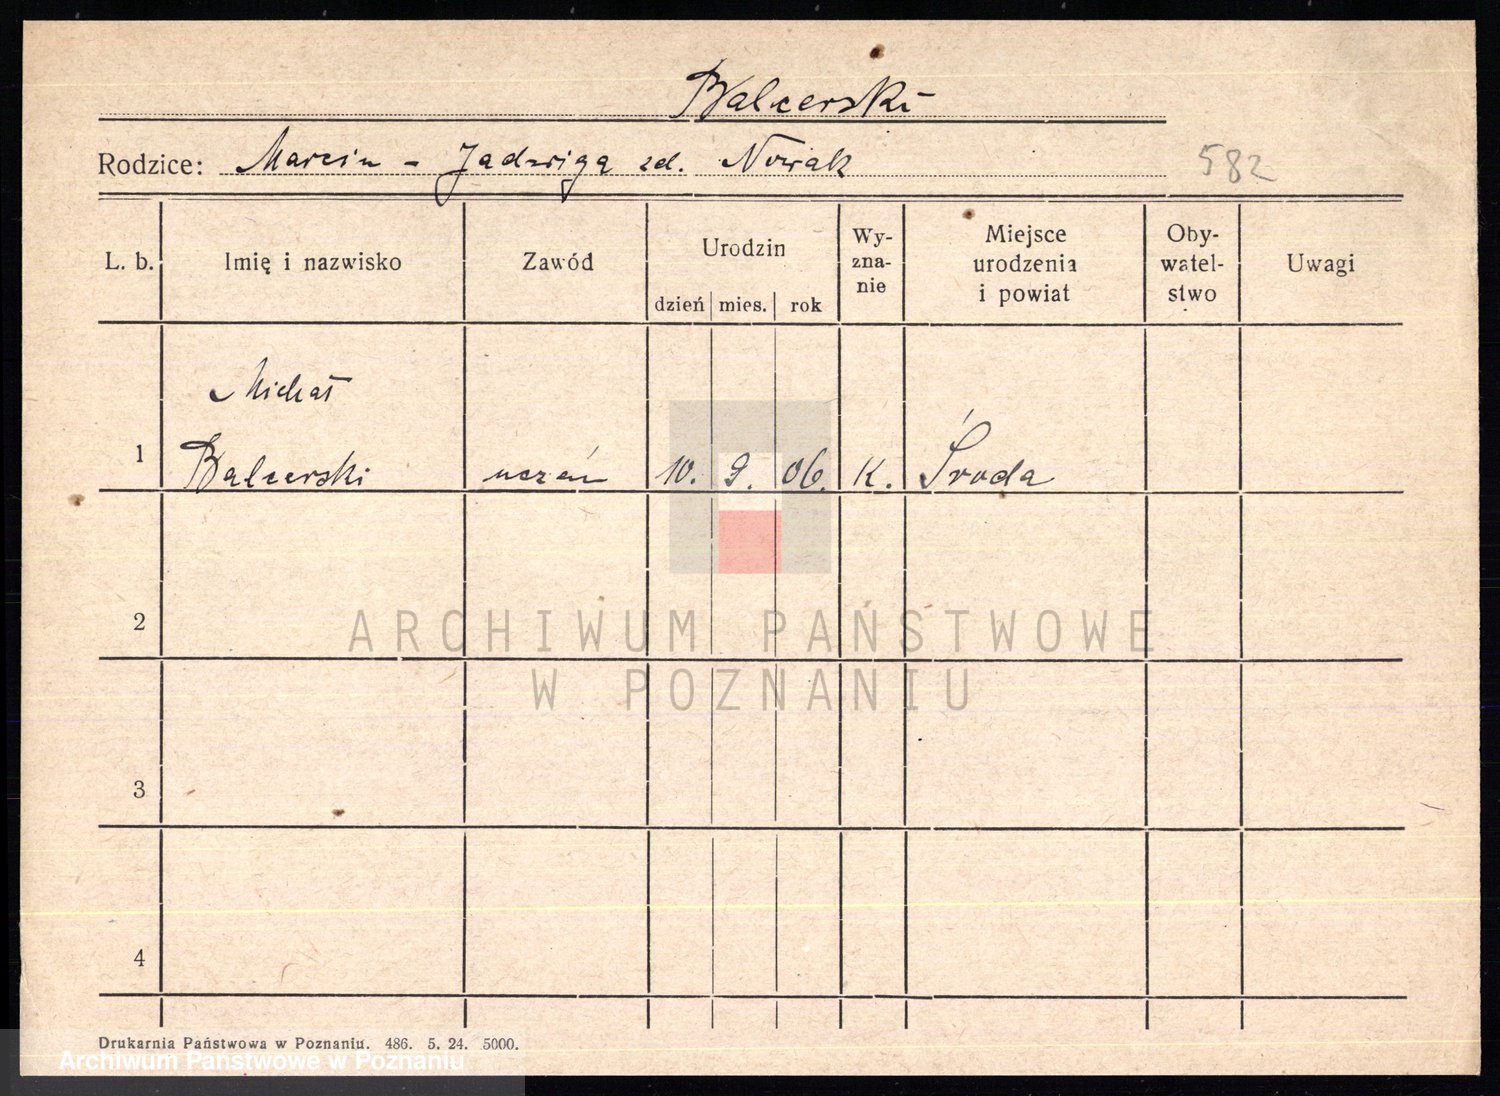 Balcerski
Rodzice: Marcin - Jadwiga zd. Nowak
582
L. b. Imię i nazwisko Zawód Urodzin dzień mies. rok Wy-
zna-
nie Miejsce
urodzenia
i powiat Oby-
watel-
stwo Uwagi
Michał
1 Balcerski uczeń 10. 9. 06. K. Środa
2
ARCHIWUM PAŃSTWOWE
W POZNANIU
3
4
Drukarnia Państwowa w Poznaniu. 486. 5. 24. 5000.
Archiwum Państwowe w Poznaniu